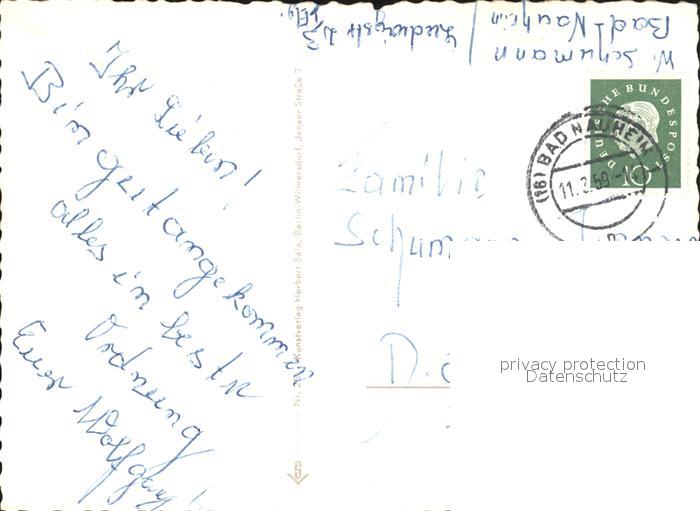 Ihr Lieben!
Bin gestangekommen
alles in bester
Ordnung
Euer Wolfgang!
W. Schumann
Bad-Nauheim
Ludwigstr
Nr. Kunstverlag Herbert Sala, Berlin-Wilmersdorf, Jenaer Straße 7
S
DEUTSCHE BUNDESPOST
10
(16) BAD NAUHEIM
11.2.59
Familie
D.
privacy protection
Datenschutz